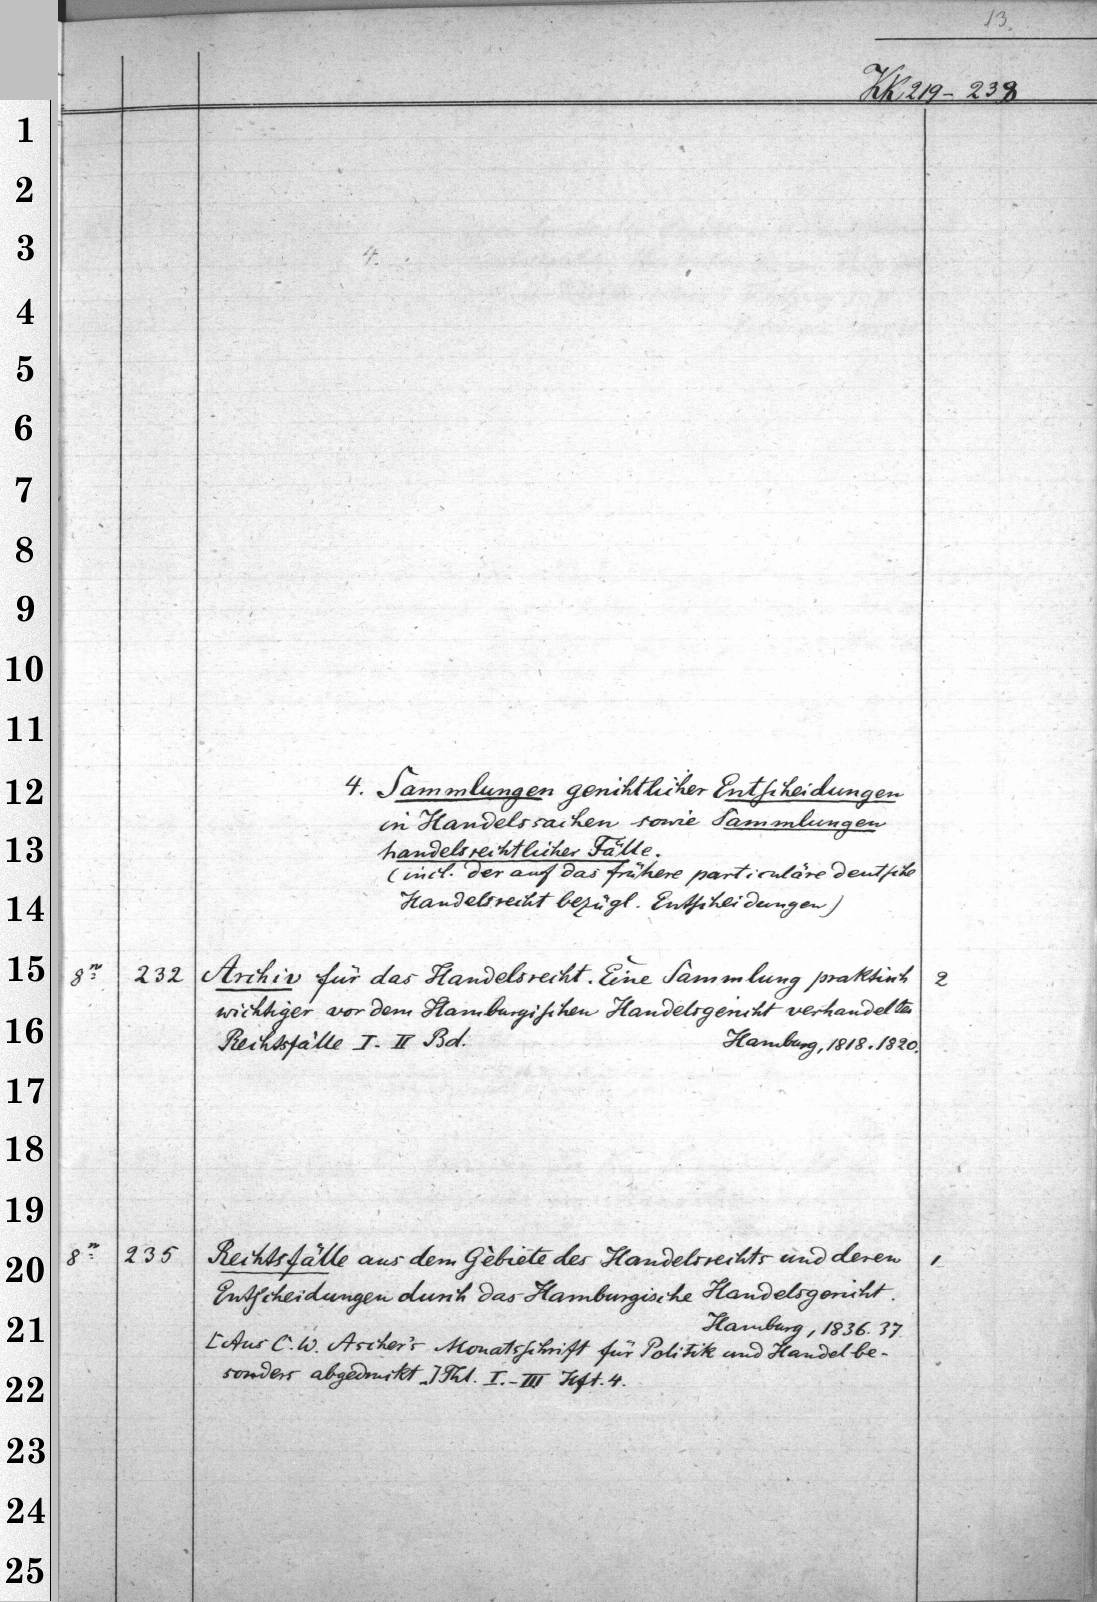 13.
KK 219 - 238
1
2
3
4.
4
5
6
7
8
9
10
11
12 4. Sammlungen gerichtlicher Entscheidungen
in Handelssachen sowie Sammlungen
13 handelsrechtlicher Fälle.
(incl. der auf das frühere particuläre deutsche
14 Handelsrecht bezügl. Entscheidungen)
15 8° 232 Archiv für das Handelsrecht. Eine Sammlung praktisch 2
wichtiger vor dem Hamburgischen Handelsgericht verhandelter
16 Rechtsfälle I. II Bd. Hamburg, 1818. 1820.
17
18
19
20 8° 235 Rechtsfälle aus dem Gebiete des Handelsrechts und deren 1
Entscheidungen durch das Hamburgische Handelsgericht.
21 Hamburg, 1836. 37.
[Aus C. W. Ascher's Monatsschrift für Politik und Handel be-
22 sonders abgedruckt.] Thl. I.-III Hft. 4.
23
24
25